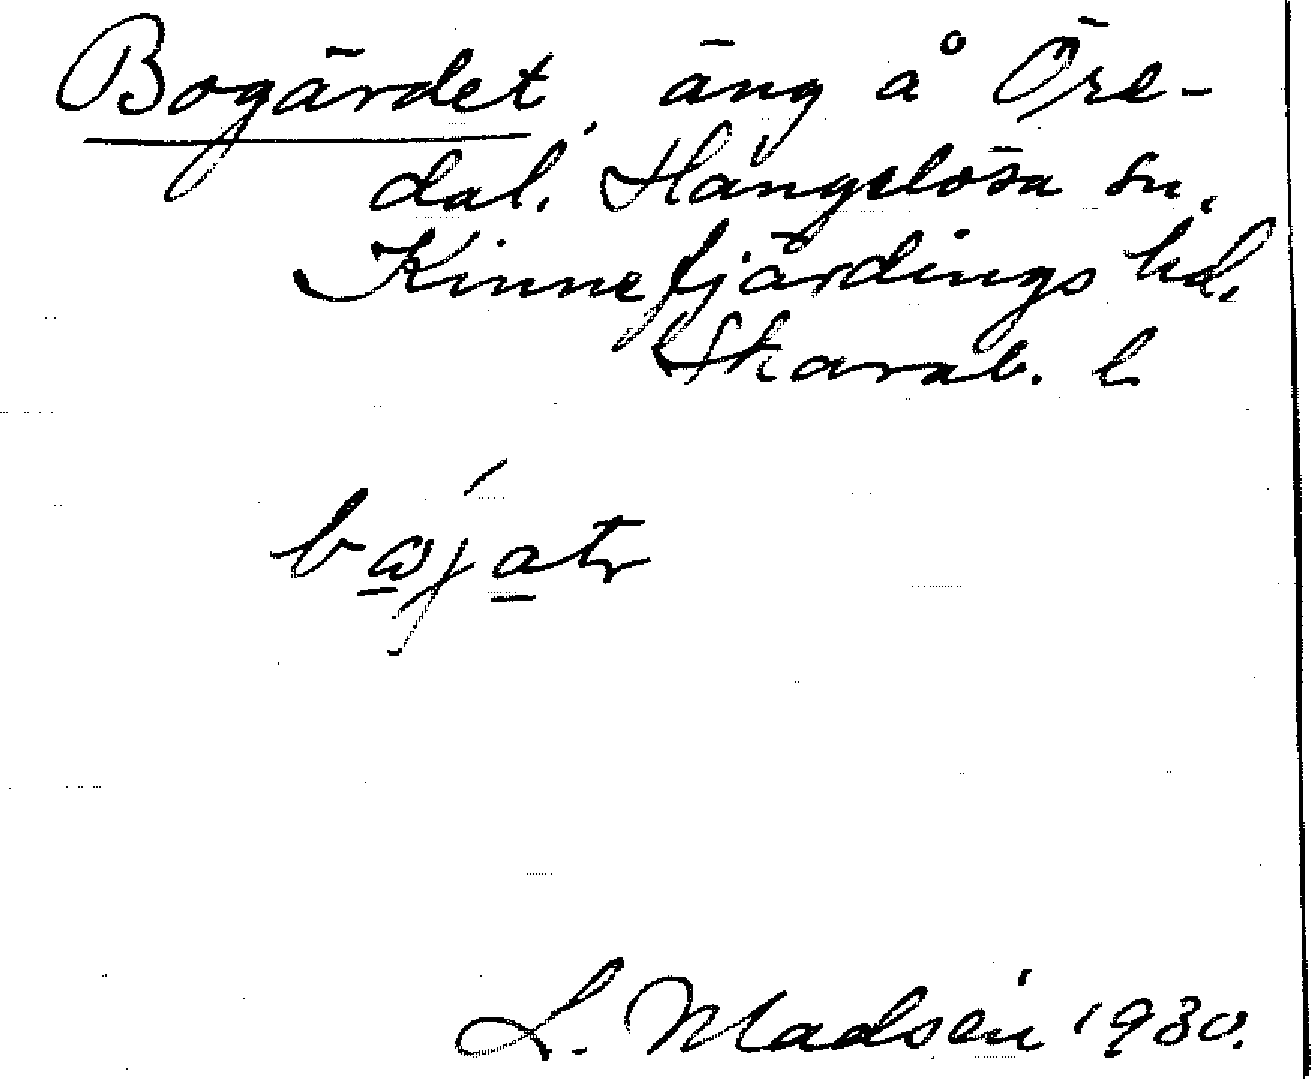 Bogärdet, äng å Öre-
dal. Hängelösa sn.
Kinnefjärdings hd.
Skarab. l
L. Madsén 1930.